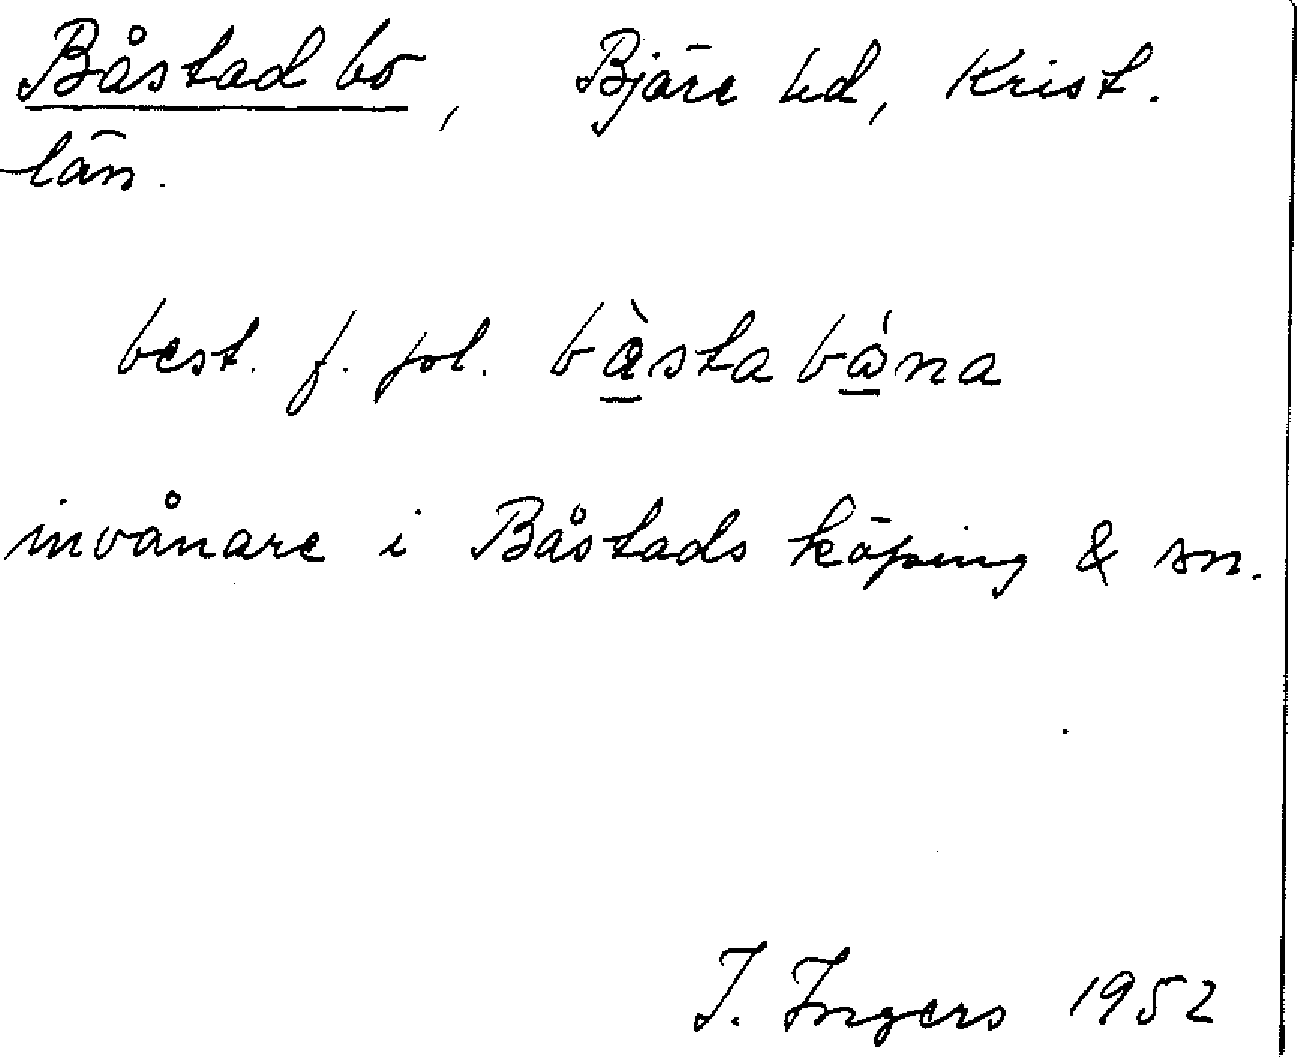 Båstadbo, Bjäre hd, Krist.
län.
best. f. pl. bàstabána
invånare i Båstads köping & sn.
I. Ingers 1952